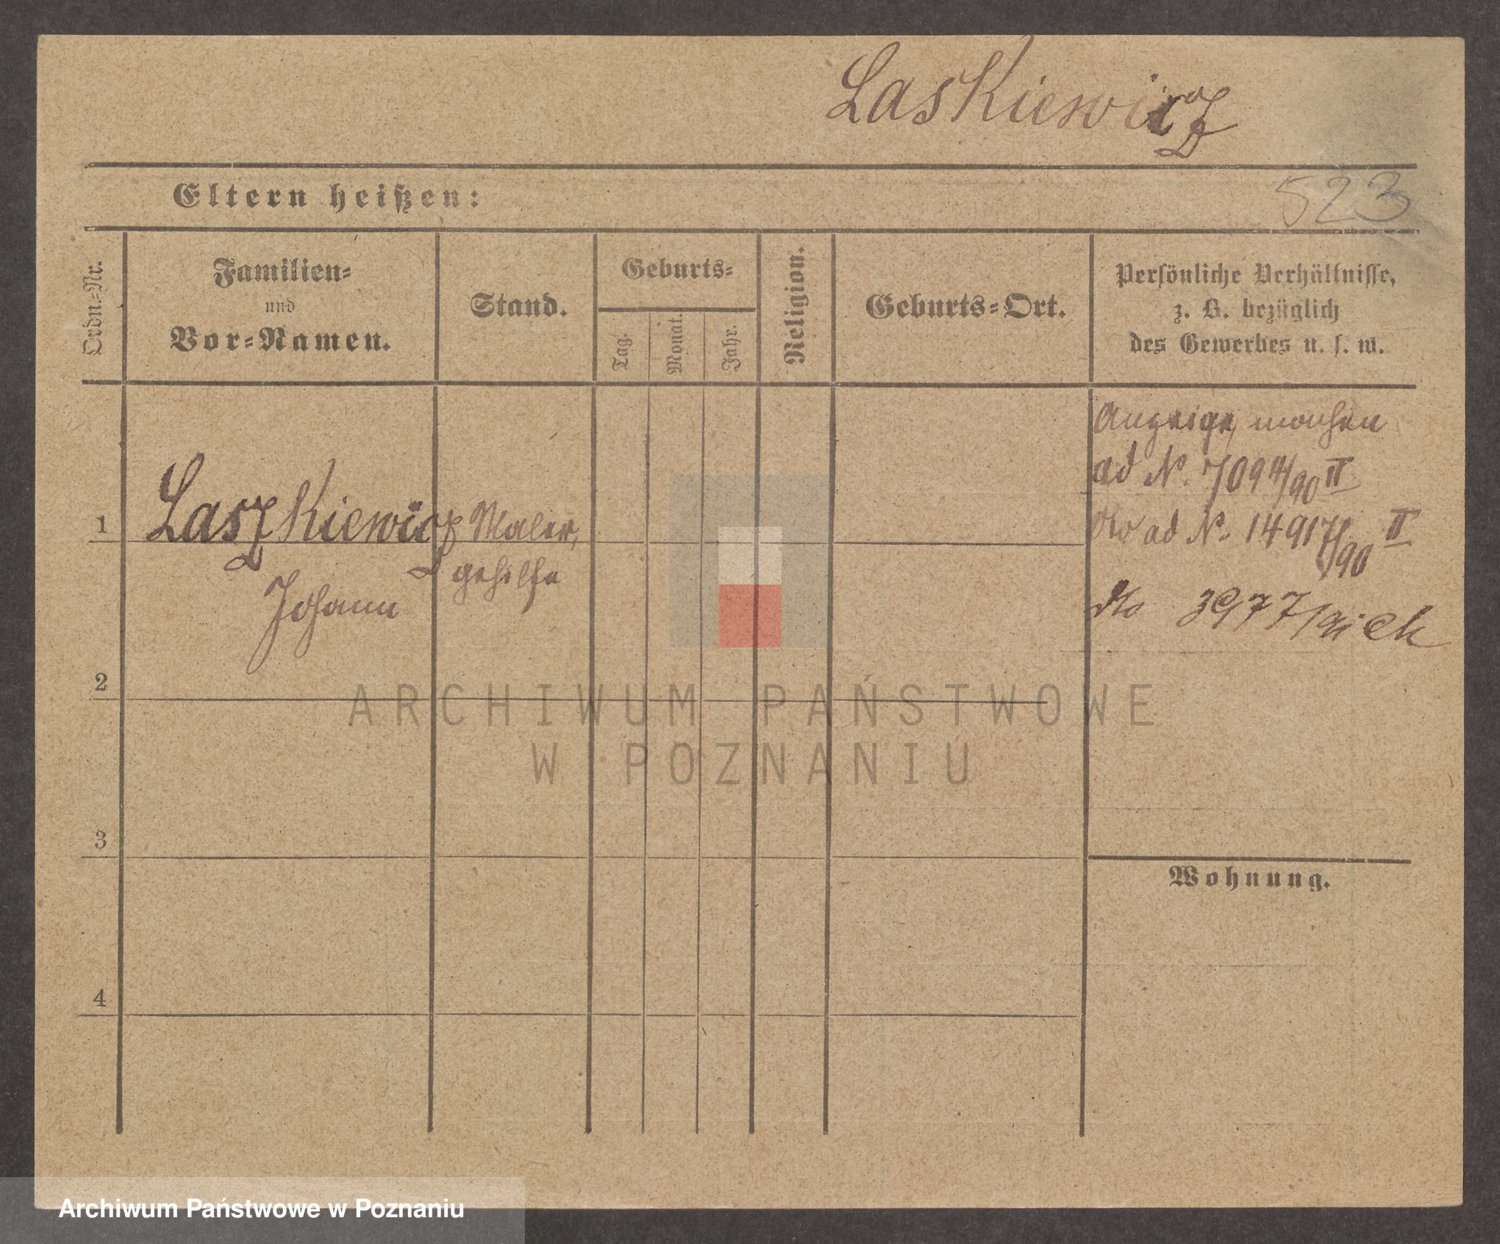 Laskiewicz
Eltern heißen:
523
Ordn.-Nr.
Familien-
und
Vor-Namen.
Stand.
Geburts-
Tag.
Monat.
Jahr.
Religion.
Geburts-Ort.
Persönliche Verhältnisse,
z. B. bezüglich
des Gewerbes u. s. w.
1
Laszkiewicz
Johann
Maler,
gehilfe
Anzeige machen
ad N. 7094/90 II
ad N. 14917/90 II
dto 3977/91
2
3
Wohnung.
4
ARCHIWUM PAŃSTWOWE
W POZNANIU
Archiwum Państwowe w Poznaniu